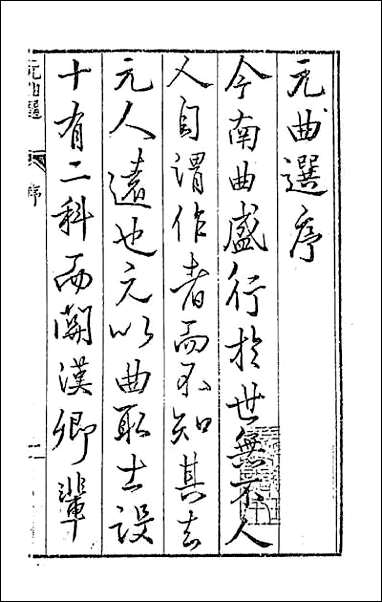 元曲選序
今南曲盛行於世無不人
人自謂作者而不知其去
元人遠也元以曲取士設
十有二科而關漢卿輩
元曲選
序
一